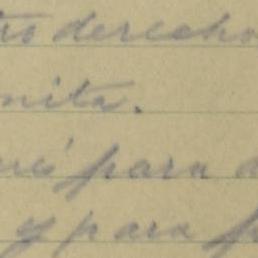 tro derecho
nita.
ré para
y para